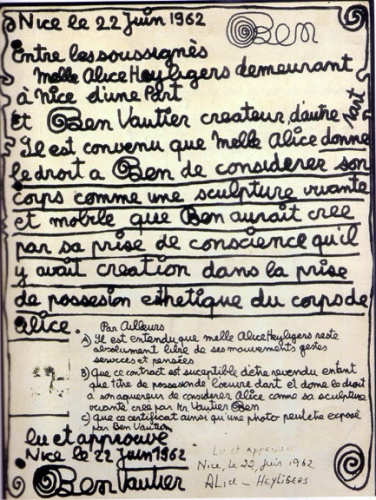 Nice le 22 Juin 1962
Ben
Entre les soussignès
Melle Alice Heyligers demeurant
à Nice d'une Part
et Ben Vautier createur, d'autre Part
Il est convenu que Melle Alice donne
le droit a Ben de considerer son
corps comme une sculpture vivante
et mobile que Ben aurait cree
par sa prise de conscience qu'il
y avait creation dans la prise
de possesion esthetique du corps de
Alice.
Par Ailleurs
A) Il est entendu que melle Alice Heyligers reste
absolument libre de ses mouvements gestes
services et pensées
B) Que ce contract est suceptible d'etre revendu en tant
que titre de possession de l'oeuvre d'art et donne le droit
a son aquereur de considerer Alice comme sa sculpture
vivante cree par Mr Vautier Ben
C) que ce certificat ainsi qu'une photo peut etre exposé
par Ben Vautier
lu et approuve
Nice le 22 Juin 1962
Ben Vautier
Lu et approuvé
Nice, le 22, Juin 1962
Alice - HEYLIGERS